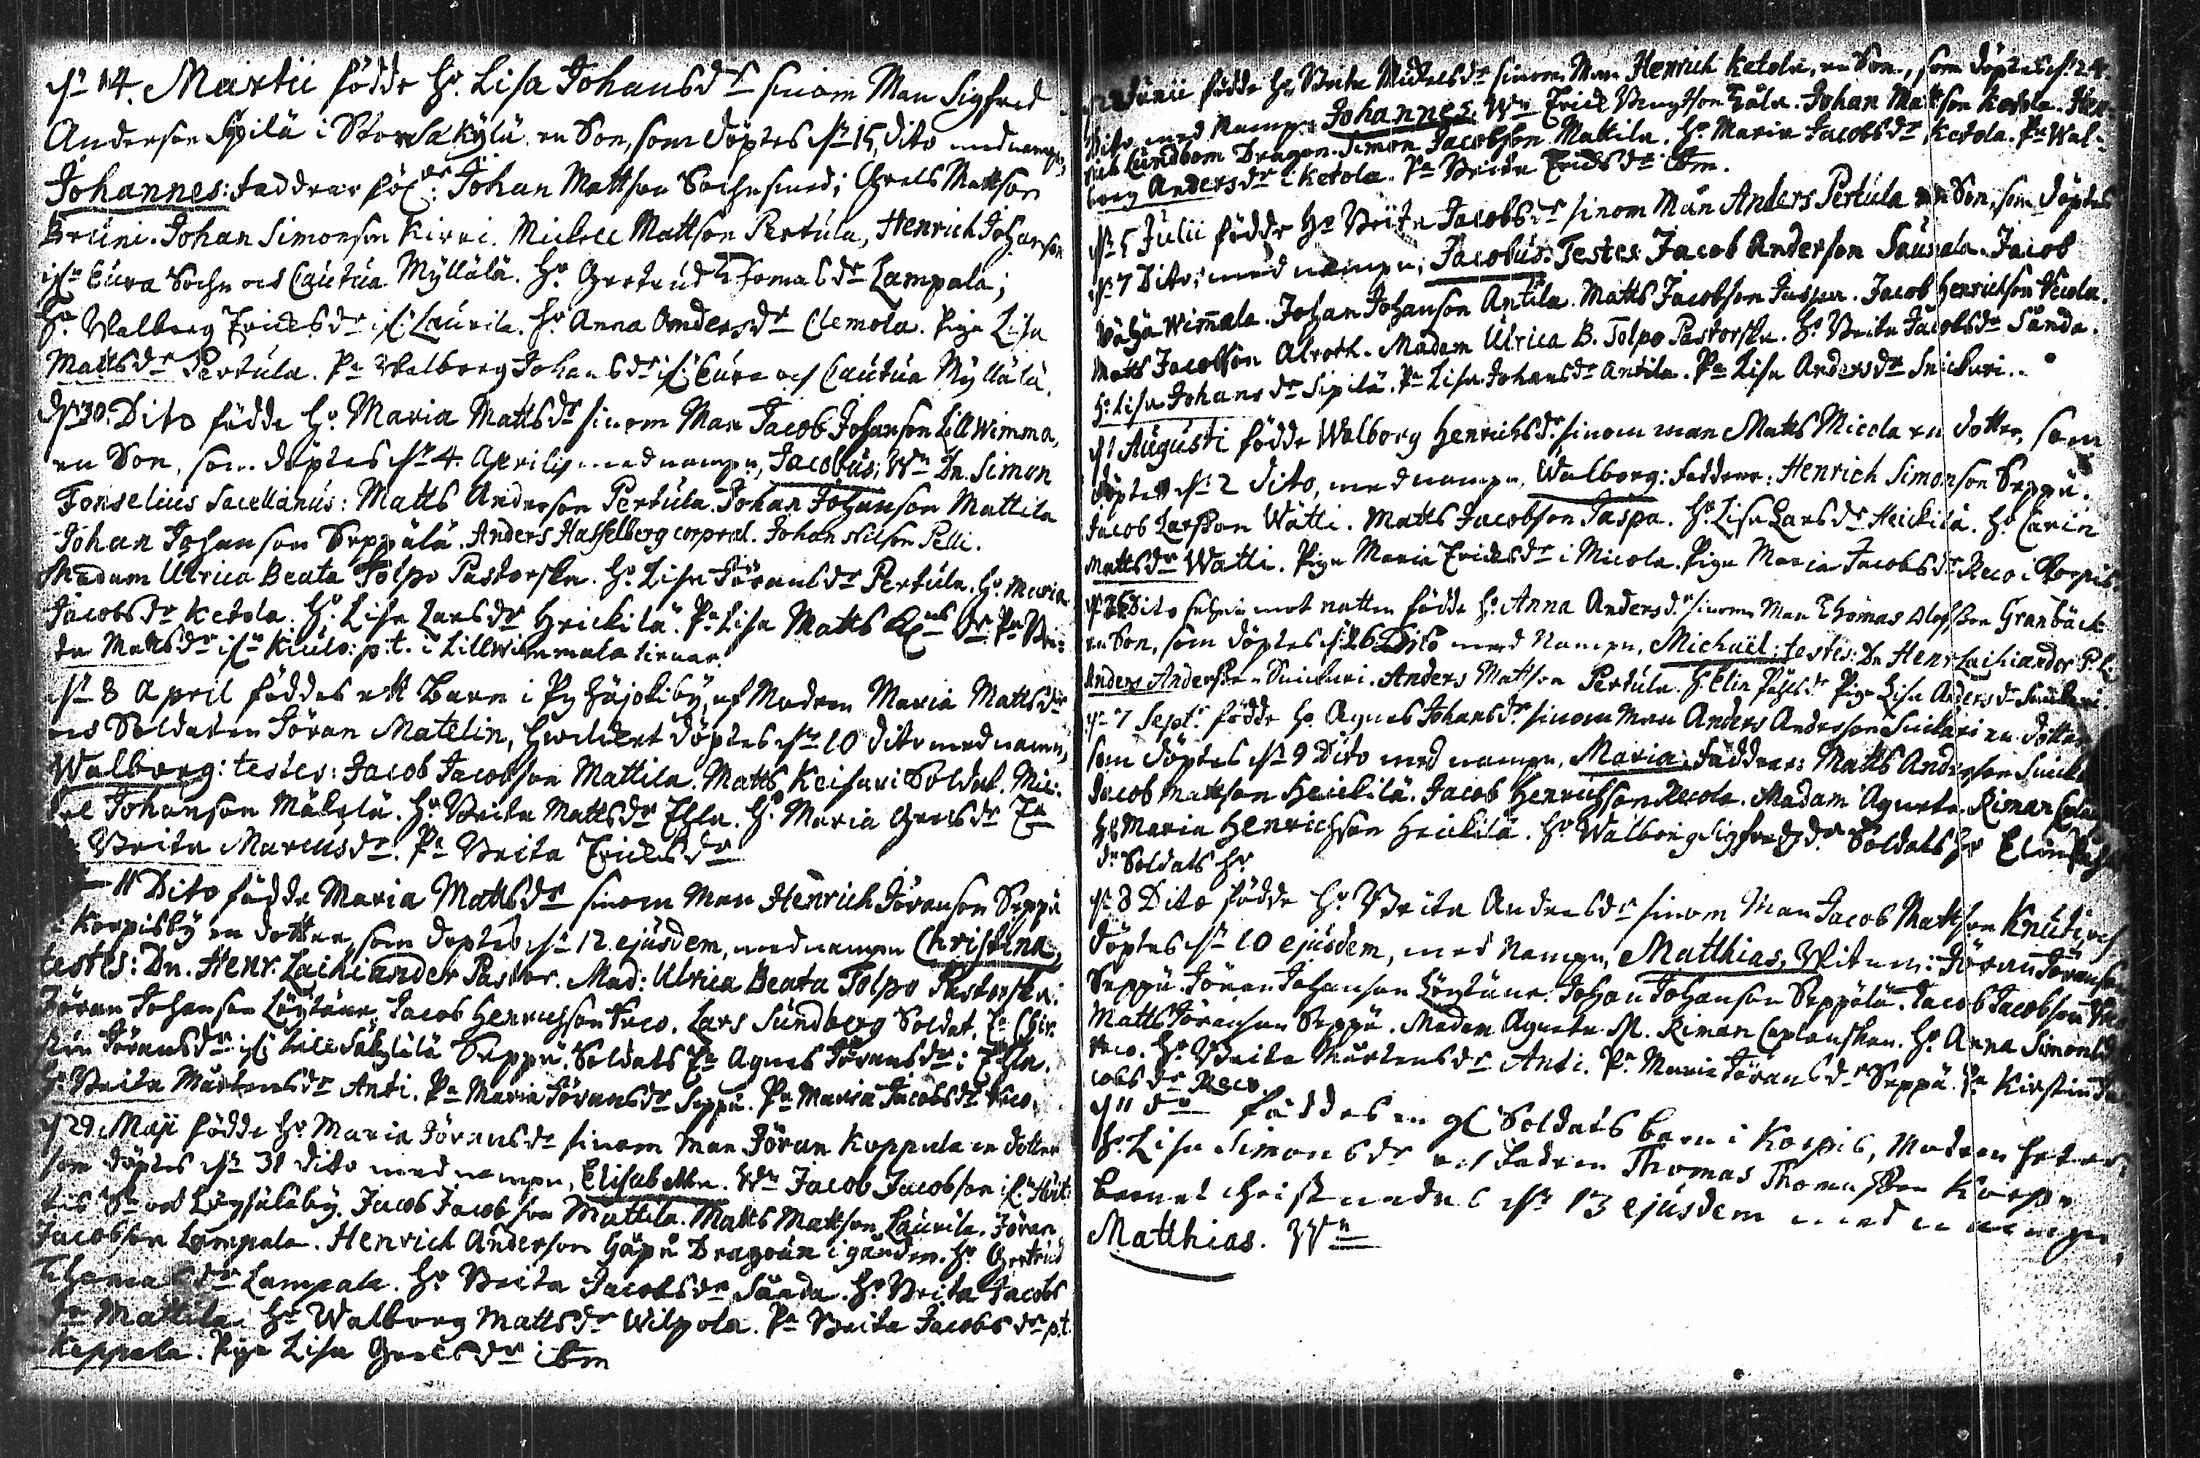 dn 14. Martii födde H. Lisa Johansdr sinom Man Sigfred
Anderson Sipilä i StorSäkylä en Son, som döptes dn 15 dito med namn,
Johannes: faddrar Johan Mattson Sochnsmed; Grels Mattson
Bruni. Johan Simonson Kirri. Mickel Mattson Pertula, Henrich Johanson
Eura Sochn och Cautua Myllälä. H. Gertrud Tomasdr Lampala;
H. Walborg Ericksdr Laurila. H. Anna Andersdr Clemola. Piga Lisa
Mattsdr Pertula. Pa Walborg Johansdr Eura och Cautua Myllälä.
dn 30 Dito födde H. Maria Mattsdr sinom Man Jacob Johanson Lillwimma,
en Son, som döptes dn 4. Aprilis med nampn, Jacobus; Wn Dn. Simon
Fonselius Sacellanus: Matts Anderson Pertula. Johan Johanson Mattila
Johan Johanson Seppälä. Anders Hasselberg corpral. Johan Nilson Pelli.
Madam Ulrica Beata Polpo Pastorska. H. Lisa Jöransdr Pertula. H. Maria
Jacobsdr Ketola. H. Lisa Larsdr Heickilä. Pa Lisa Matts dr. Pa Bri-
ta Mattsdr Kiulo: p.t. i Lillwimmala tienar
dn 8 April föddes ett Barn i Pyhäjokiby, af Modren Maria Mattsdr
och Soldaten Jöran Matelin, hwilcket döptes dn 10 dito med namn,
Walborg: testes: Jacob Jacobson Mattila. Matts Keisari Soldat. Mic-
kel Johanson Mäkelä. H. Brita Mattsdr Ehla. H. Maria Grelsdr
Brita Marcusdr. Pa Brita Ericksdr
11 Dito födde Maria Mattsdr sinom Man Henrich Jöranson Seppä
i Korpisby en dotter, som döptes dn 12 ejusdem, med nampn Christina,
testes: Dn. Henr. Laihiander Pastor. Mad: Ulrica Beata Polpo Pastorska.
Jöran Johanson Löytäne, Jacob Henrichsson Reco. Lars Sundberg Soldat. Chir-
stin Jöransdr Lill Säkylä Seppä. Soldats Agnes Jöransdr: Ehla.
H. Brita Mårtensdr Anti. Pa Maria Jöransdr Seppä. Pa Maria Jacobsdr Reco.
d 29. Maji födde H. Maria Jöransdr sinom Man Jöran Koppala en dotter
som döptes dn 31 dito med nampn, Elisabetha. Wn Jacob Jacobson Hvit-
tis Sn och Löysäläby. Jacob Jacobson Mattila. Matts Mattson Laurila. Jöran
Jacobson Lampala. Henrich Anderson Häpä Dragoun. H. Gertrud
Thomasdr Lampala. H. Brita Jacobsdr Sända. H. Brita Jacobs
dr Mattila. H. Walborg Mattsdr Wilpola. Pa Brita Jacobsdr p.t.
Koppala. Piga Lisa Grelsdr ibm
Junii födde H. Brita Mickelsdr sinom Man Henrich Ketola, en Son, som döptes d. 24
Dito med nampn Johannes. Wn Erick Bengtson. Johan Mattson Ketola. Hen-
rich Lundbom Dragon. Simon Jacobson Mattila. H. Maria Jacobsdr Ketola. Pa Wal-
borg Andersdr i Ketola. Pa Brita Ericksdr ibm.
dn 5 Julii födde H. Brita Jacobsdr sinom Man Anders Pertula en Son, som döptes
dn 7 Dito; med nampn; Jacobus: Testes Jacob Anderson Sausala. Jacob
Wähäwimmala. Johan Johanson Antila. Matts Jacobson Jaspa. Jacob Henrichson Recola.
Matts Jacobson Alroth. Madam Ulrica B. Polpo Pastorska. H. Brita Jacobsdr Sända.
H. Lisa Johansdr Sipilä. Pa Lisa Johansdr Antila. Pa Lisa Andersdr Snickari.
d 1 Augusti födde Walborg Henrichsdr sinom man Matts Micola en dotter, som
döptes dn 2 dito, med nampn, Walborg: faddrar: Henrich Simonson Seppä.
Jacob Larsson Wätti. Matts Jacobson Jaspa. H. Lisa Larsdr Heickilä. H. Carin
Mattsdr Wätti. Piga Maria Ericksdr i Micola. Piga Maria Jacobsdr Reco i Korpis.
Dito mot natten födde H. Anna Andersdr sinom Man Thomas Olofsson Granbäck
en Son, som döptes d. 26 Dito med Nampn, Michael: testes: Dn Henr Laihiander P. L.
Anders Anderson Snickari. Anders Mattson Pertula. H. Elin. Piga Lisa Andersdr Snickari.
dn 7 Septr födde H. Agnes Johansdr sinom Man Anders Andersson Snickari en dotter
som döptes dn 9 Dito med nampn, Maria, faddrar: Matts Anderson
Jacob Mattson Heickilä. Jacob Henrichsson Recola. Madam Agneta Riman
H. Maria Henrichson Heickilä. H. Walborg Sigfredsdr Soldats H. Elin
dr Soldats H.
dn 8 Dito födde H. Brita Andersdr sinom Man Jacob Mattson Knuti och
döptes dn 10 ejusdem, med Nampn, Matthias, Witnen: Jöran Jöranson
Seppä. Jöran Johanson Löytäne. Johan Johanson Seppälä. Jacob Jacobson
Matts Jöranson Seppä. Madam Agneta M. Riman Caplanskan. H. Anna Simonsdr
Reco. H. Brita Mårtensdr Anti. Pa Maria Jöransdr Seppä. Pa Kirstin Ja-
cobsdr Reco.
d 11 föddes en Soldats barn i Korpis, Modren heter
H. Lisa Simonsdr och fadren Thomas Thomasson Korp
barnet christnades dn 13 ejusdem med nampn,
Matthias. Wn